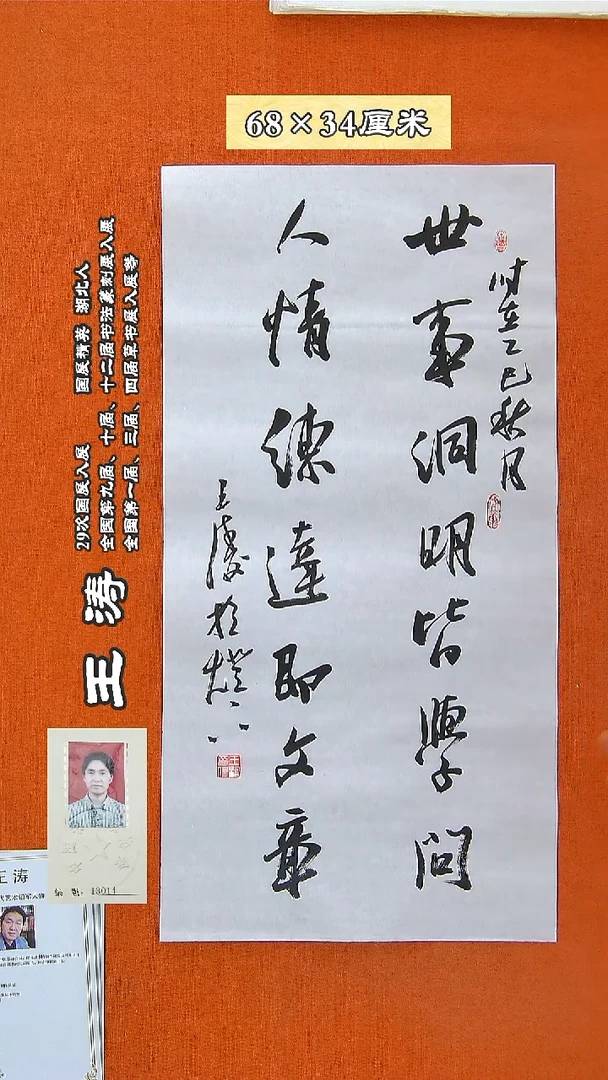 68×34厘米
时在乙巳秋月
世事洞明皆學問
人情练達即文章
王涛於灯下
29次国展入展 国展精英 湖北人
全国第九届、十届、十二届书法篆刻展入展
全国第一届、三届、四届草书展入展等
王涛
编号：13014
王涛